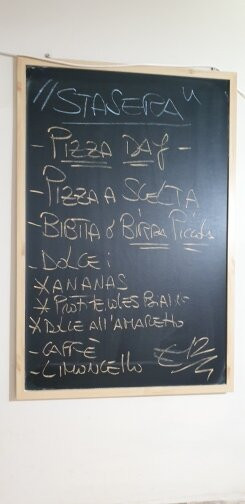 "STASERA"
- PIZZA DAY -
- PIZZA A SCELTA
- BIBITA o BIRRA Piccola
- DOLCE:
* ANANAS
* PROFITEROLES
* DOLCE all'AMARETTO
- CAFFÈ
- LIMONCELLO €12